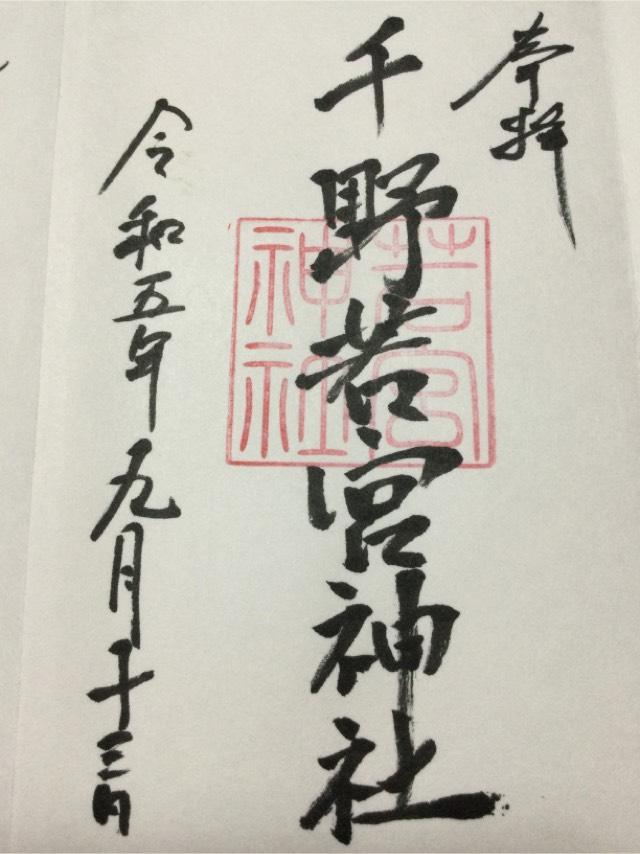 奉拝
千野若宮神社
若宮
神社
令和五年九月十三日